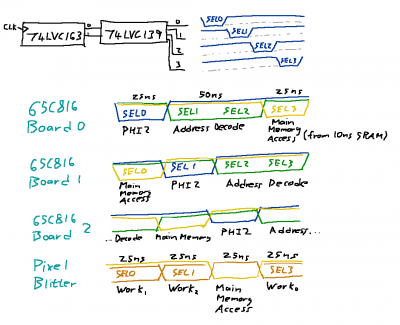 CLK 74LVC163 0 1 74LVC139 0 1 2 3
SEL0
SEL1
SEL2
SEL3
25ns 50ns 25ns
65C816 Board 0
SEL0 SEL1 SEL2 SEL3
PHI2 Address Decode Main Memory Access (from 10ns SRAM)
65C816 Board 1
SEL0 SEL1 SEL2 SEL3
Main Memory Access PHI2 Address Decode
65C816 Board 2
...Decode Main Memory PHI2 Address...
Pixel Blitter
25ns 25ns 25ns 25ns
SEL0 SEL1 SEL3
Work₁ Work₂ Main Memory Access Work₀